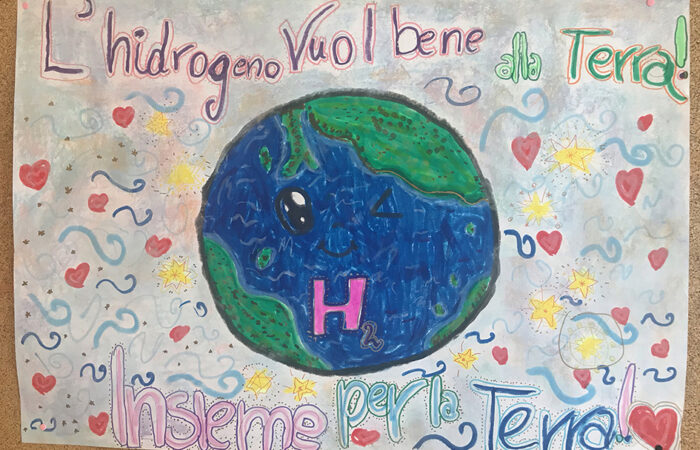 L'hidrogeno vuol bene alla Terra!
H2
Insieme per la Terra!